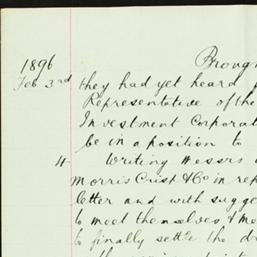 Brough
1896
Feb 3rd they had yet heard
Representative of the
Investment Corporat
be in a position to
4 Writing Messrs
Morris Crisp & Co in rep
letter and with sugge
to meet themselves & Me
to finally settle the dr